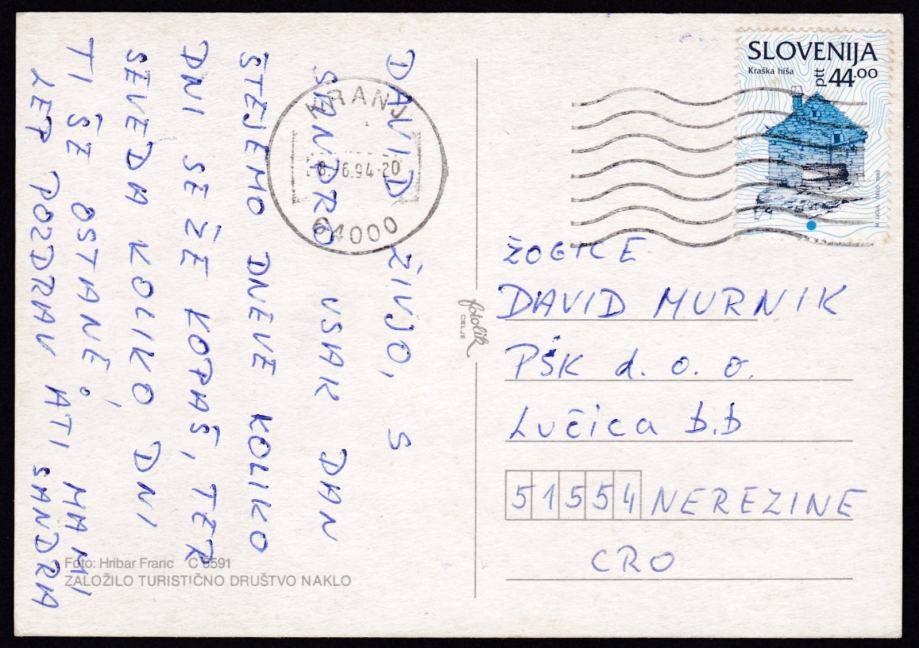 DAVID ŽIVJO, S
SANDRO VSAK DAN
ŠTEJEMO DNEVE KOLIKO
DNI SE ŽE KOPAŠ, TER
SEVEDA KOLIKO DNI
TI ŠE OSTANE!
LEP POZDRAV ATI MAMI
SANDRA
KRANJ
6.94-20
64000
SLOVENIJA
Kraška hiša
ptt 44.00
ŽOGICE
DAVID MURNIK
PŠK d. o. o.
Lučica b.b
51554 NEREZINE
CRO
fotolik
CELJE
Foto: Hribar Franc C 8591
ZALOŽILO TURISTIČNO DRUŠTVO NAKLO